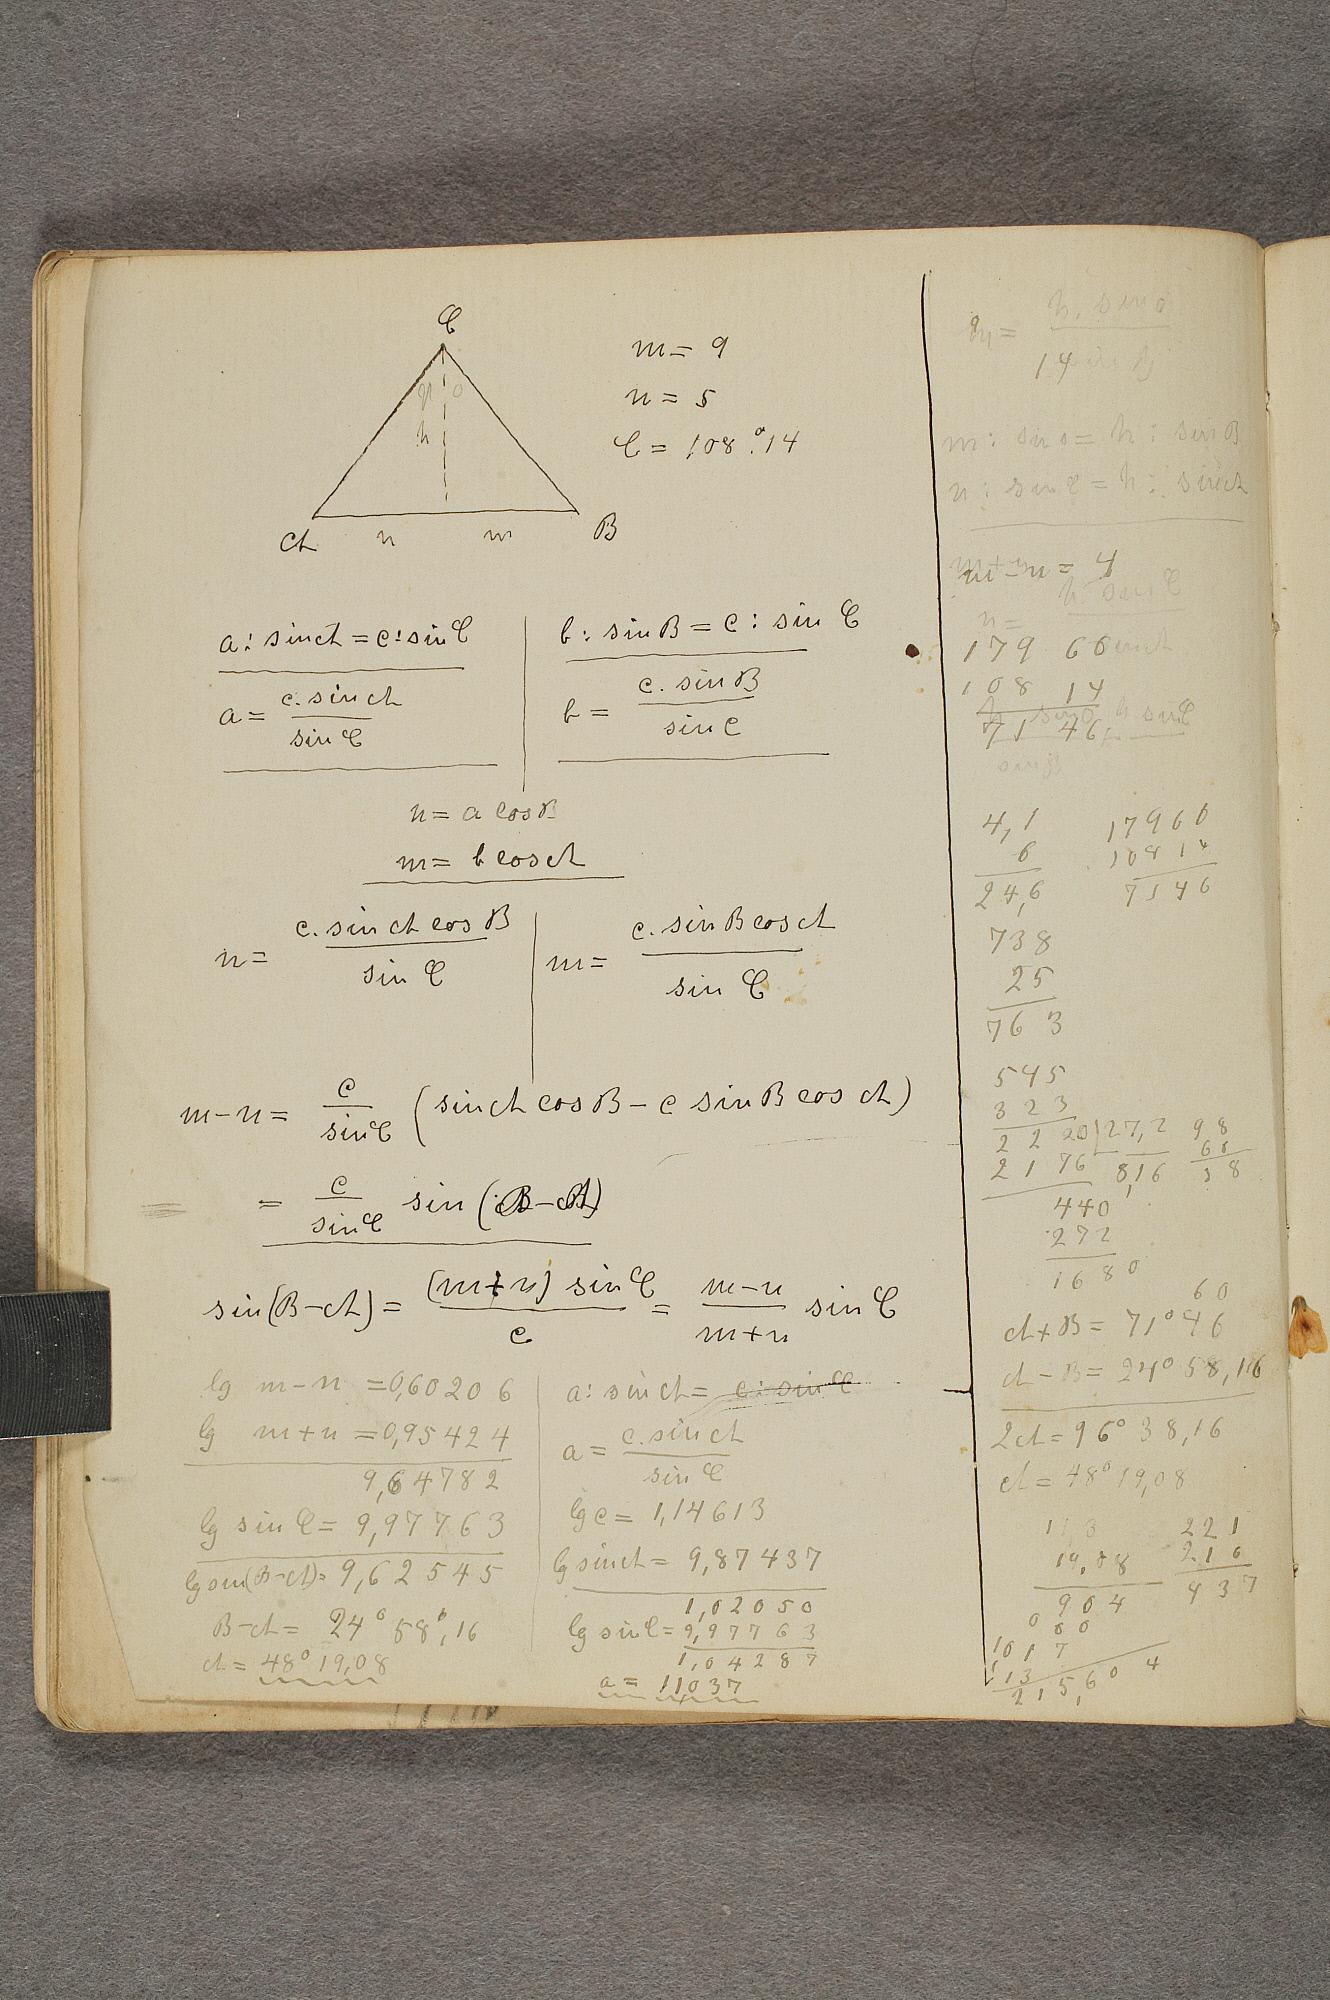 C
m = 9
n = 5
C = 108° 14
h
A n m B
a : sin A = c : sin C
a = c. sin A / sin C
b : sin B = c : sin C
b = c. sin B / sin C
n = a cos B
m = b cos A
n = c. sin A cos B / sin C
m = c. sin B cos A / sin C
m - n = c / sin C (sin A cos B - c sin B cos A)
= c / sin C sin (B - A)
sin (B - A) = (m + n) sin C / c = m - n / m + n sin C
lg m - n = 0,60206
lg m + n = 0,95424
9,64782
lg sin C = 9,97763
lg sin (B - A) = 9,62545
B - A = 24° 58',16
A = 48° 19,08
a : sin A = c : sin C
a = c. sin A / sin C
lg c = 1,14613
lg sin A = 9,87437
1,02050
lg sin C = 9,97763
1,04287
a = 11037
m : sin o = h : sin B
n : sin C = h : sin A
m - n = 4
179 60
108 14
71 46
4,1
6
24,6
17960
10814
7146
738
25
763
545
323
2220 27,2
2176 8,16
98
60
38
440
272
1680
60
A + B = 71° 46
A - B = 24° 58,16
2A = 96° 38,16
A = 48° 19,08
113
19,08
904
000
1017
113
215,604
221
216
437